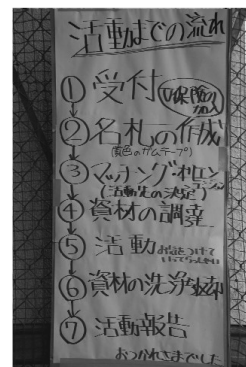 活動までの流れ
① 受付
② 名札の作成
(黄色のガムテープ)
③ マッチング・オリエン
テーション
(活動先の決定)
④ 資材の調達
⑤ 活動 お気をつけて
いってらっしゃい
⑥ 資材の洗浄・返却
⑦ 活動報告
おつかれさまでした